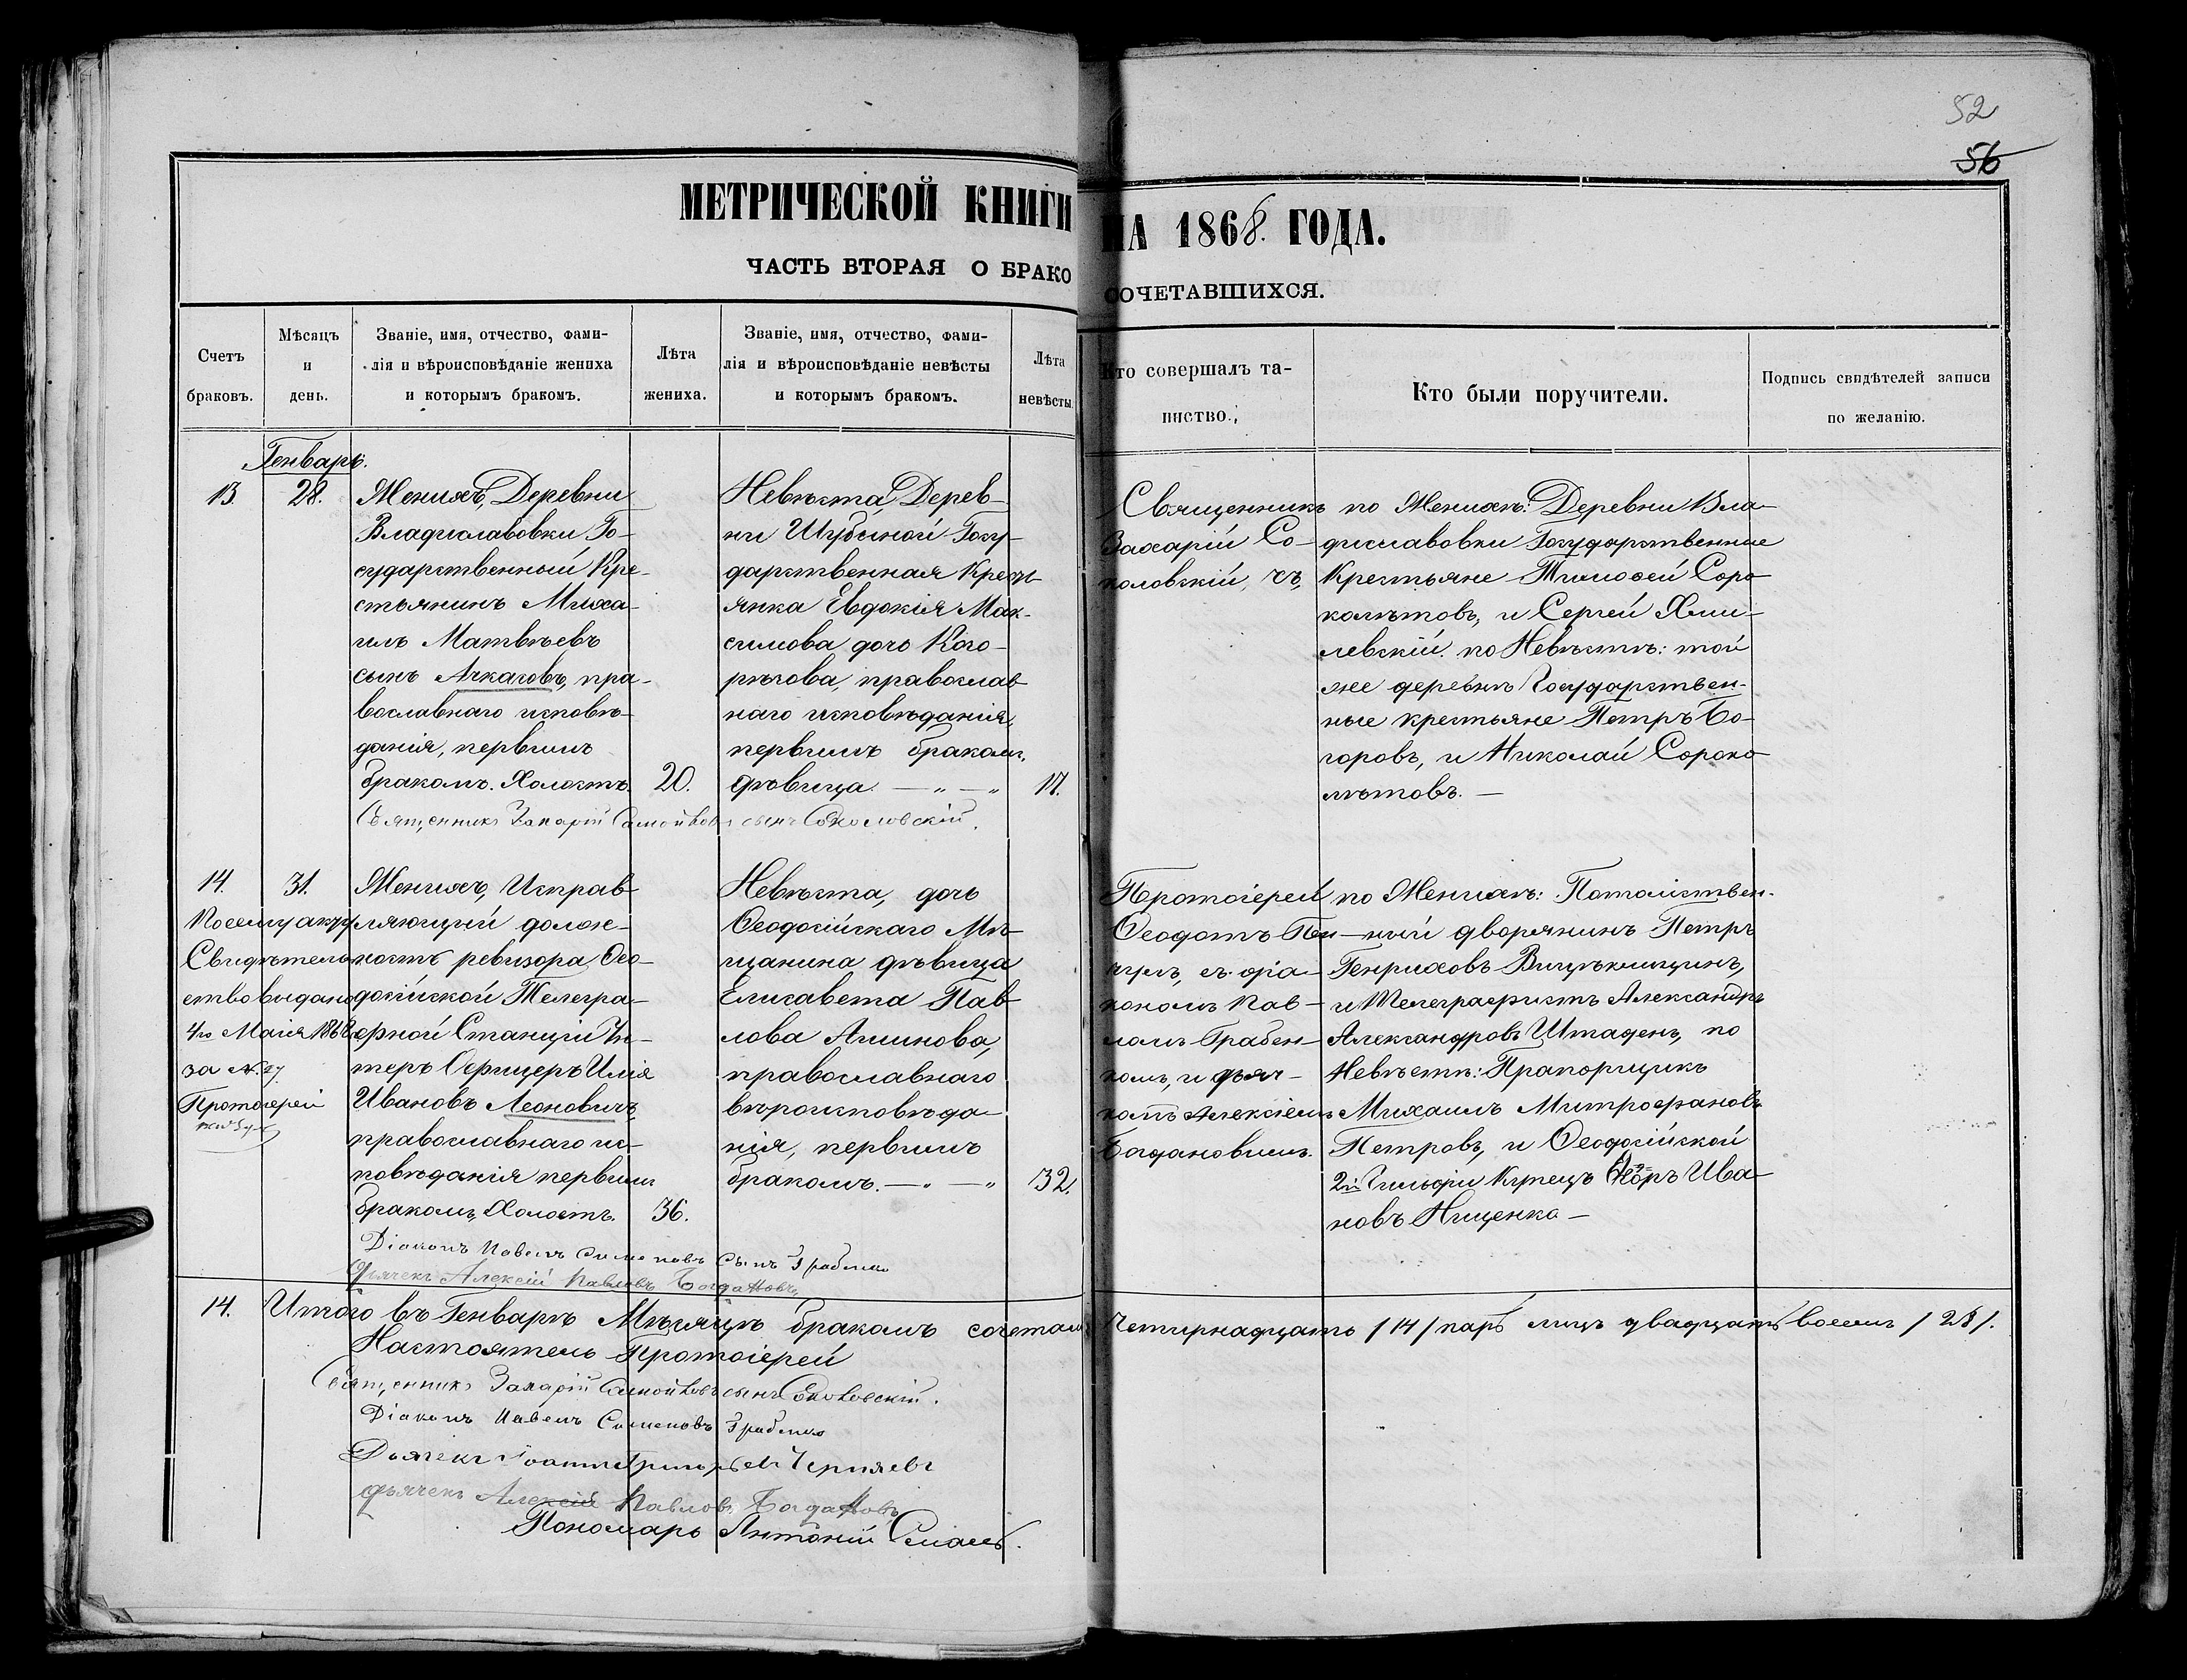 52
56
МЕТРИЧЕСКОЙ КНИГИ НА 1868. ГОДА.
ЧАСТЬ ВТОРАЯ О БРАКОСОЧЕТАВШИХСЯ.
Счетъ
браковъ.
Мѣсяцъ
и
день.
Званіе, имя, отчество, фами-
лія и вѣроисповѣданіе жениха
и которымъ бракомъ.
Лѣта
жениха.
Званіе, имя, отчество, фами-
лія и вѣроисповѣданіе невѣсты
и которымъ бракомъ.
Лѣта
невѣсты.
Кто совершалъ та-
инство.
Кто были поручители.
Подпись свидѣтелей записи
по желанію.
Генварь.
13.
28.
Женихъ, Деревни
Владиславовки Го-
сударственный Кре-
стьянинъ Миха-
илъ Матвѣевъ
сынъ Ачкасовъ, пра-
вославнаго исповѣ-
данія, первымъ
бракомъ. Холостъ.
20.
Невѣста, Дерев-
ни Шубиной Госу-
дарственная Кресть-
янка Евдокія Мак-
симова дочь Кого-
рѣчова, православ-
наго исповѣданія,
первымъ бракомъ,
дѣвица. — „ — „
17.
Священникъ
Захарій Со-
коловскій, съ
по Женихѣ: Деревни Вла-
диславовки Государственные
Крестьяне Тимофей Соро-
колѣтовъ, и Сергей Хми-
левскій. по Невѣстѣ: той
же деревнѣ Государствен-
ные крестьяне Петръ Бо-
горовъ, и Николай Сороко-
лѣтовъ. —
Священникъ Захарій Самойловъ сынъ Соколовскій.
14.
31.
По сему акту
Свидѣтель-
ство выдано
4го Маія 1868
за №. 27
Протоіерей
Женихъ, Исправ-
ляющій долж-
ность ревизора Ѳео-
досійской Телегра-
фной Станціи Ун-
теръ Офицеръ Илія
Ивановъ Леоновичъ,
православнаго ис-
повѣданія первымъ
бракомъ, Холостъ.
36.
Невѣста, дочь
Ѳеодосійскаго Мѣ-
щанина дѣвица
Елисавета Пав-
лова Аминова,
православнаго
вѣроисповѣда-
нія, первымъ
бракомъ. — „ — „
32.
Протоіерей
Ѳеодотъ
съ діа-
кономъ Пав-
ломъ Грабен-
комъ, и дьяч-
комъ Алексіемъ
Богдановымъ.
по Женихѣ: Потомствен-
ный дворянинъ Петръ
Генриховъ
и Телеграфистъ Александръ
Александровъ Штаденъ, по
Невѣстѣ: Прапорщикъ
Михаилъ Митрофановъ
Петровъ, и Ѳеодосійской
2й Гильдіи Купецъ Ива-
новъ Ниценко —
Діаконъ Павелъ Симеоновъ Сынъ Грабенко
Дьячекъ Алексій Павловъ Богдановъ
14.
Итого въ Генварѣ Мѣсяцѣ бракомъ сочетались Четырнадцать /14/ паръ лицъ двадцать восемь /28/.
Настоятель Протоіерей
Священникъ Захарій Самойловъ сынъ Соколовскій.
Діаконъ Павелъ Симеоновъ Грабенко
Дьячекъ Іоаннъ Григорьевъ Черняевъ
Дьячекъ Алексій Павловъ Богдановъ
Пономарь Антоній